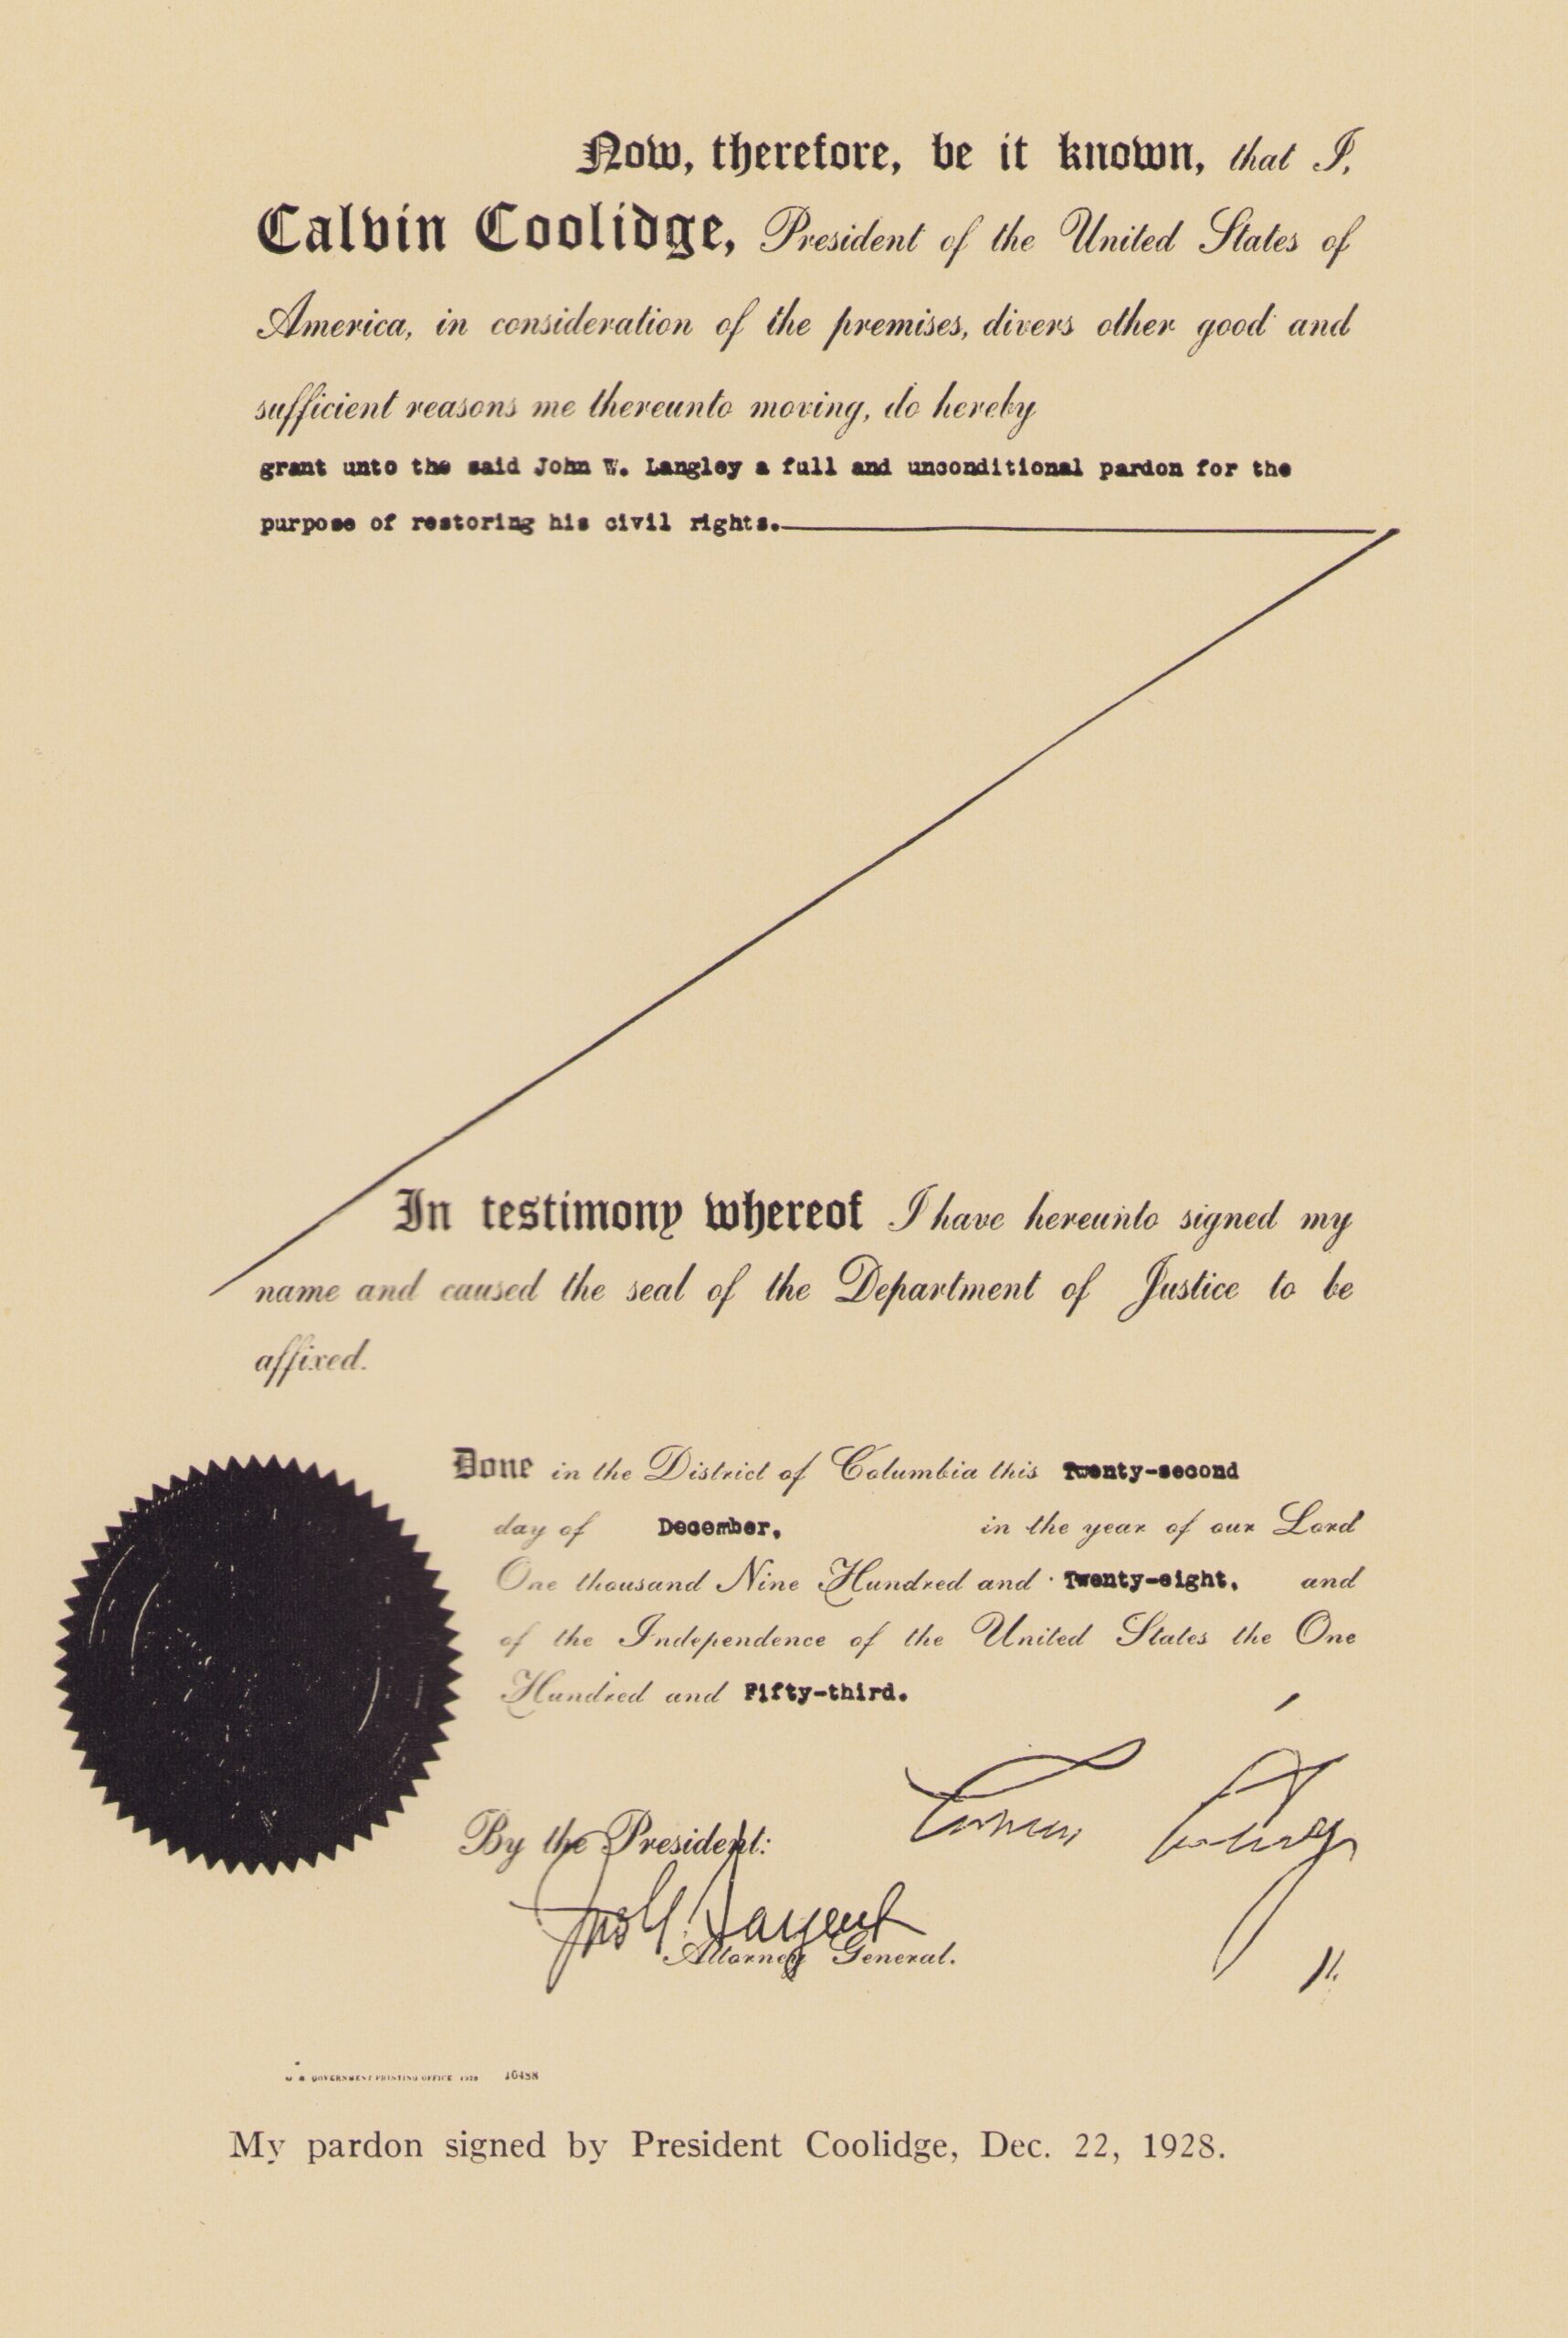 Now, therefore, be it known, that I,
Calvin Coolidge, President of the United States of
America, in consideration of the premises, divers other good and
sufficient reasons me thereunto moving, do hereby
grant unto the said John W. Langley a full and unconditional pardon for the
purpose of restoring his civil rights.
In testimony whereof I have hereunto signed my
name and caused the seal of the Department of Justice to be
affixed.
Done in the District of Columbia this Twenty-second
day of December, in the year of our Lord
One thousand Nine Hundred and Twenty-eight, and
of the Independence of the United States the One
Hundred and Fifty-third.
Calvin Coolidge
By the President:
Jno G. Sargent
Attorney General.
GOVERNMENT PRINTING OFFICE 1928 16488
My pardon signed by President Coolidge, Dec. 22, 1928.